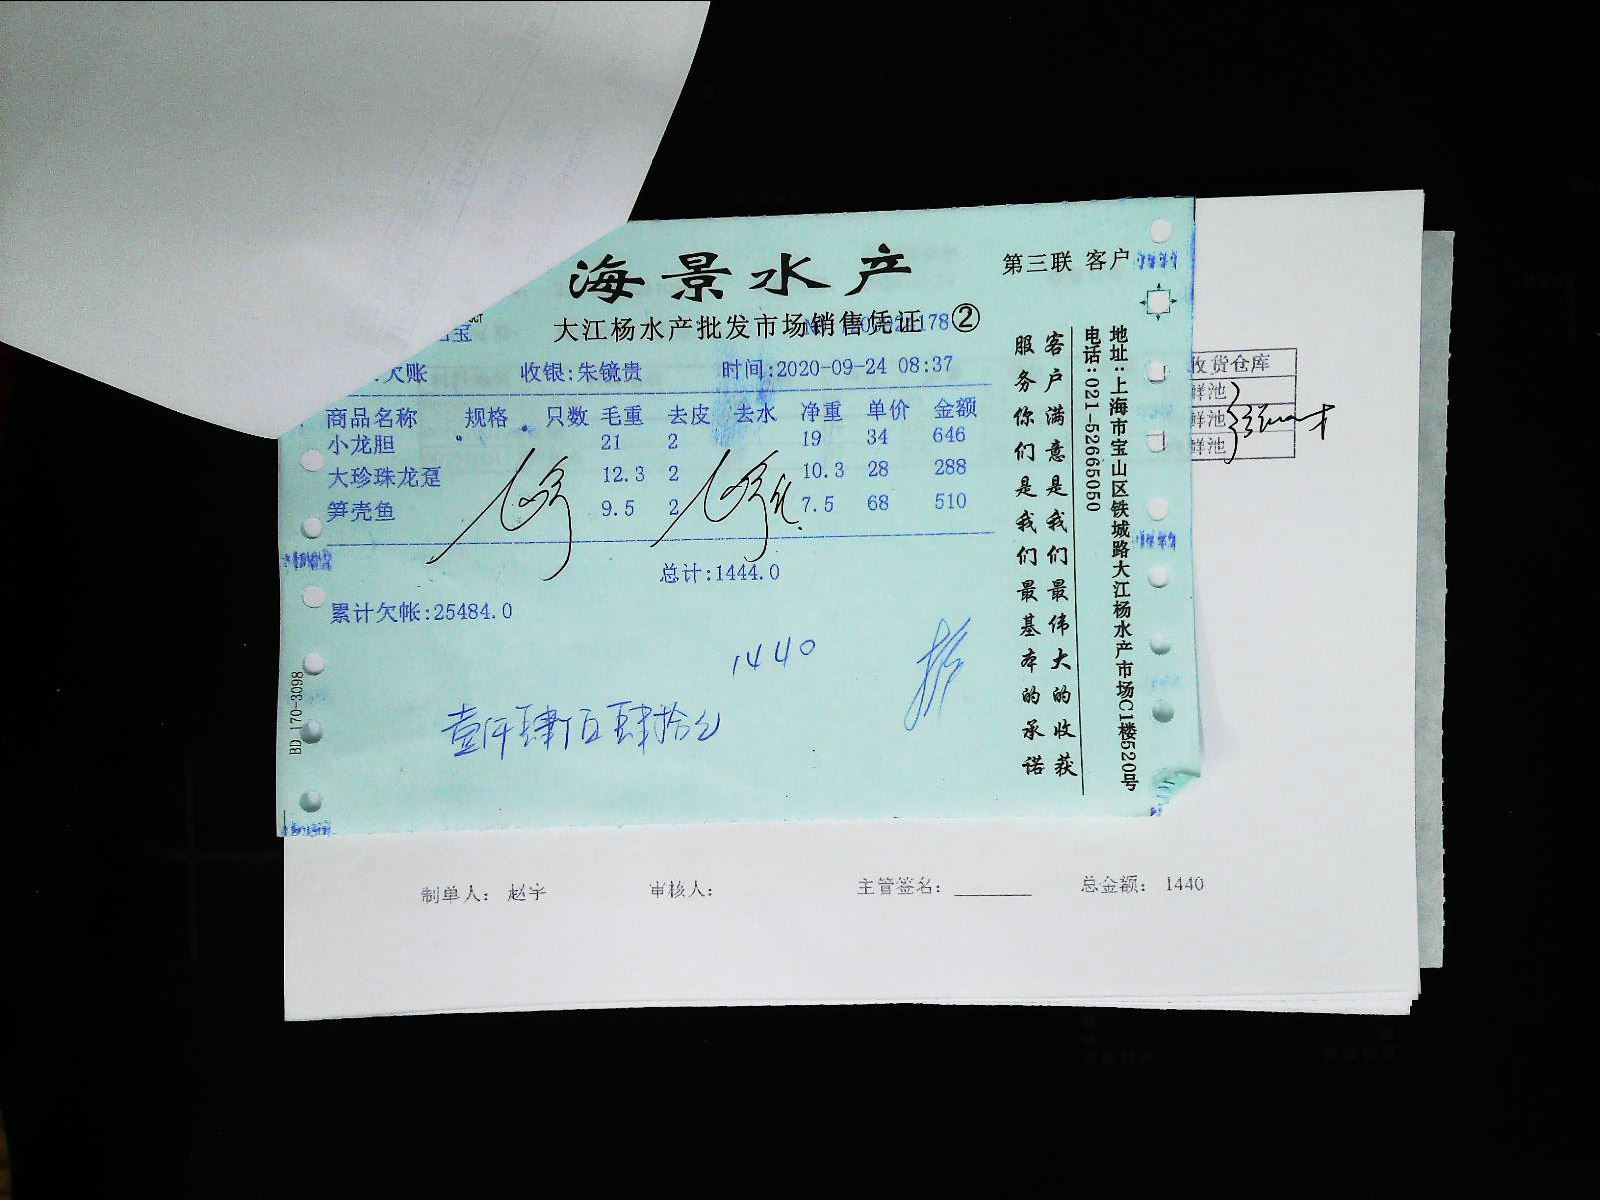 海景水产
第三联 客户
大江杨水产批发市场销售凭证 ②
欠账 收银:朱镜贵 时间:2020-09-24 08:37
商品名称 规格 只数 毛重 去皮 去水 净重 单价 金额
小龙胆 21 2 19 34 646
大珍珠龙趸 12.3 2 10.3 28 288
笋壳鱼 9.5 2 7.5 68 510
总计:1444.0
累计欠帐:25484.0
1440
壹仟肆佰肆拾元
BD 170-3098
客户满意是我们最伟大的收获
服务你们是我们最基本的承诺
地址:上海市宝山区铁城路大江杨水产市场C1楼520号
电话:021-52665050
收货仓库
鲜池
鲜池
鲜池
制单人: 赵宇 审核人: 主管签名: 总金额: 1440